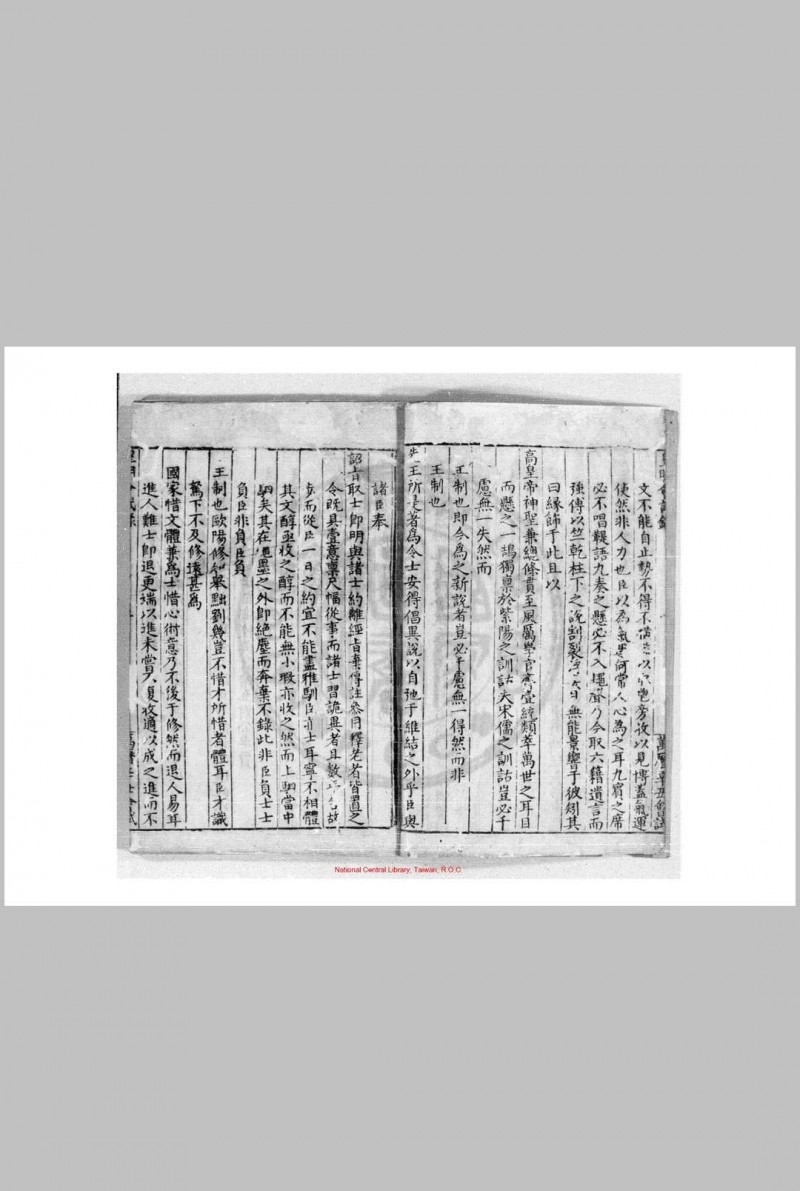 文不能自止勢不得不 以 旁收以見博蓋氣運
使然非人力也臣以為氣 何常人心為之耳九賓之席
必不唱鞮語九奏之懸必不入 聲 今取六籍遺言而
強傅以竺乾柱下之說割裂 無能景響于彼矧其
曰緣飾于此且以
高皇帝神聖兼總條貫至風厲學官 壹統類萃萬世之耳目
而懸之一鵠獨稟於紫陽之訓詁夫宋儒之訓詁豈必千
慮無一失然而
王制也即今為之新說者豈必千慮無一得然而非
王制也
先王所是著為令士安得倡異說以自弛于維結之外乎臣與
諸臣奉
詔旨取士即明與諸士約離經旨棄傳註參用釋老者皆置之
令既具壹意稟尺幅從事而諸士習詭異者且數 故
步而從臣一日之約宜不能盡雅馴臣 士耳寧不相體
其文醇亟收之醇而不能無小瑕亦收之然而上駟當中
駟矣其在繩墨之外即絕塵而奔棄不錄此非臣負士士
負臣非負臣臣負
王制也歐陽修知舉黜劉幾豈不惜才所惜者體耳臣才識
駑下不及修遠甚為
國家惜文體兼為士惜心術意乃不後于修然而退人易耳
進人難士即退更端以進未嘗不復收適以成之進而不
萬曆辛丑會試
National Central Library, Taiwan, R.O.C.